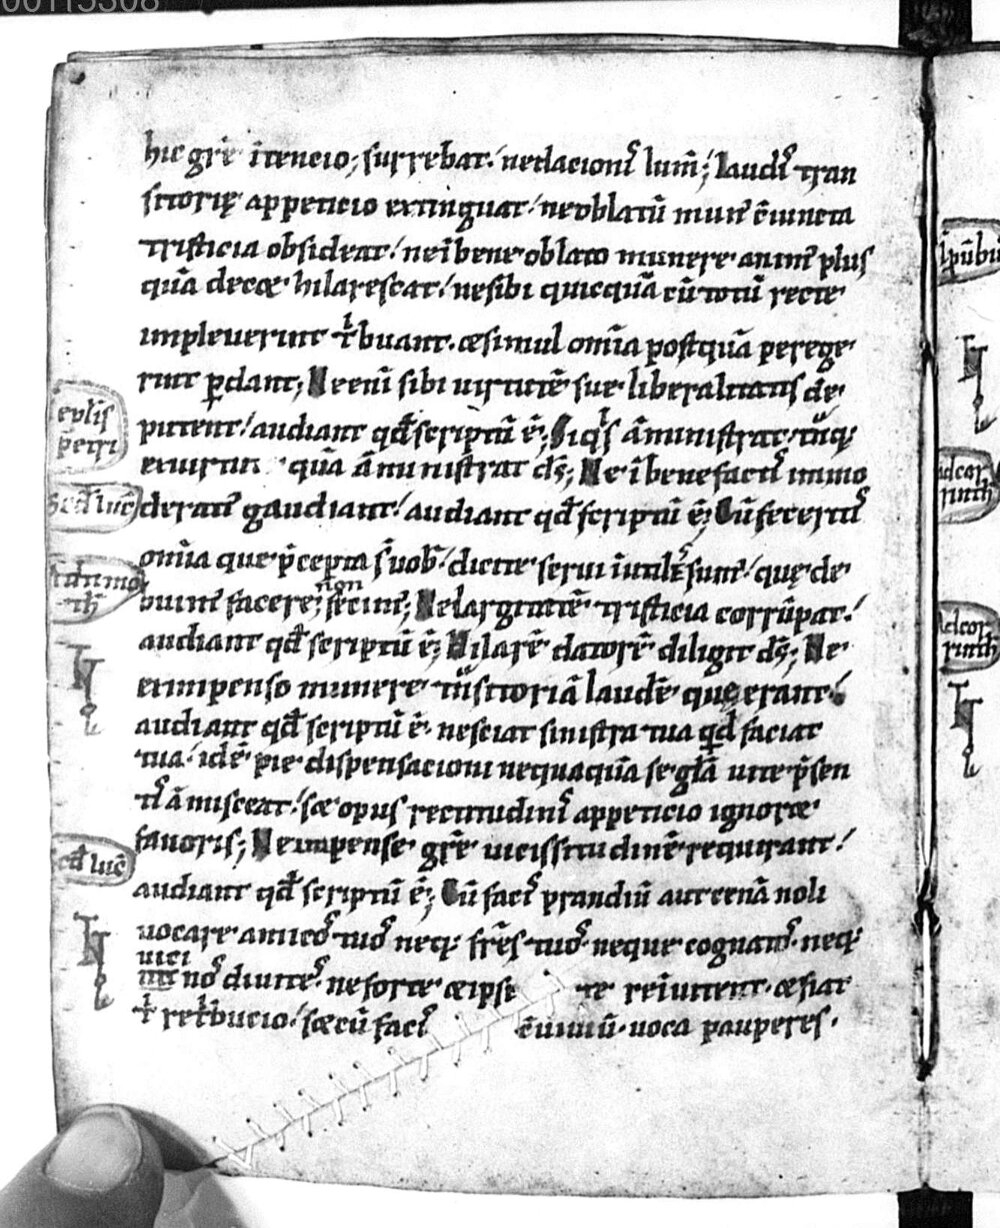 00115308
huc grē intencio; surrebat. nedacionꝰ lum̄; laudꝰ tran
sitorię appeticio extinguat. neoblatū munꝰ c̄iuncta
tristicia obsideat. neībene oblato munere animꝰ plus
quā decet hilarescat. nesibi quicquā cū totū recte
impleuerint tͥbuant. et simul om̄ia postquā perege
rint ꝑdant; Ne enī sibi uirtutē sue liberalitatis de
putent. audiant qd̄ scriptū ē; Siqͥs āministrat. tūꝗ
ex uirtut quā āministrat ds̄; Ne ībenefactꝰ immo
deratꝰ gaudiant. audiant qd̄ scriptū ē; Cū feceritꝰ
om̄ia que p̄cepta s̄ uob̄. dicite serui īutilꝰ sumꝰ. quę de
buimꝰ facere; non fecimꝰ; Ne largitatē tristicia corrūpat.
audiant qd̄ scriptū ē; Hilarē datorē diligit ds̄; Ne
ex impenso munere tͣnsitoriā laudē querant.
audiant qd̄ scriptū ē. nesciat sinistra tua qd̄ faciat
tua. idē pie dispensacioni nequaquā se glā uite p̄sen
tꝰ āmisceat. set opus rectitudinꝰ appeticio ignoret
fauoris; Ne impense grē uicissitudinē requirant.
audiant qd̄ scriptū ē; Cū facꝰ prandiū aut cenā noli
uocare amicoꝰ tuoꝰ neꝗ frēs tuoꝰ. neque cognatoꝰ. neꝗ
uici
noꝰ diuiteꝰ. ne forte et ipse te reīuitent. et fiat
tͥ retͥbucio. set cū facꝰ cōuiuiū. uoca pauperes.
eplīs
petri
Scd̄ luc̄
Scd̄ luc̄
Adcor
rinth
Adcor
rinth